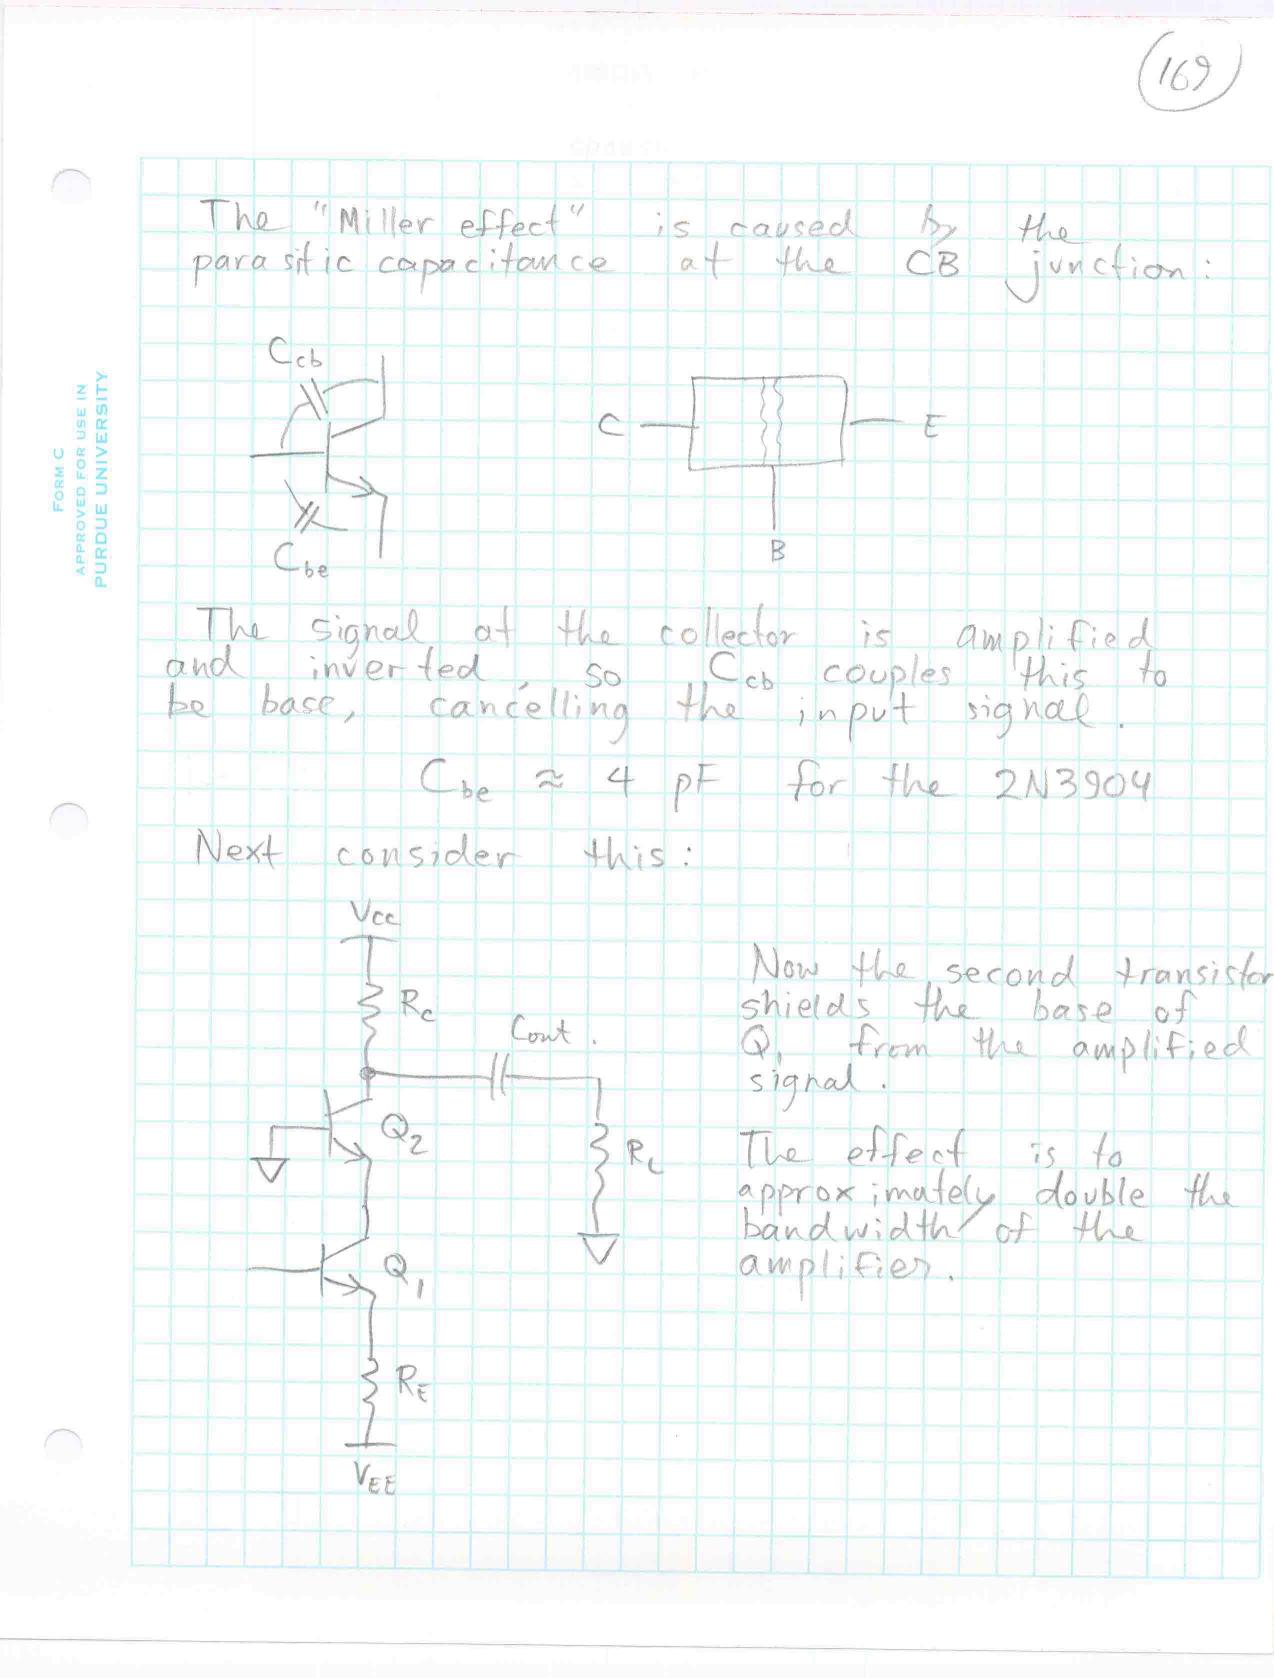 169
FORM C
APPROVED FOR USE IN
PURDUE UNIVERSITY
The "Miller effect" is caused by the
parasitic capacitance at the CB junction:
Ccb
C
E
B
Cbe
The signal at the collector is amplified
and inverted, so Ccb couples this to
be base, cancelling the input signal.
Cbe ≈ 4 pF for the 2N3904
Next consider this:
Vcc
Rc
Cout.
Q2
RL
Q1
RE
VEE
Now the second transistor
shields the base of
Q1 from the amplified
signal.
The effect is to
approximately double the
bandwidth of the
amplifier.